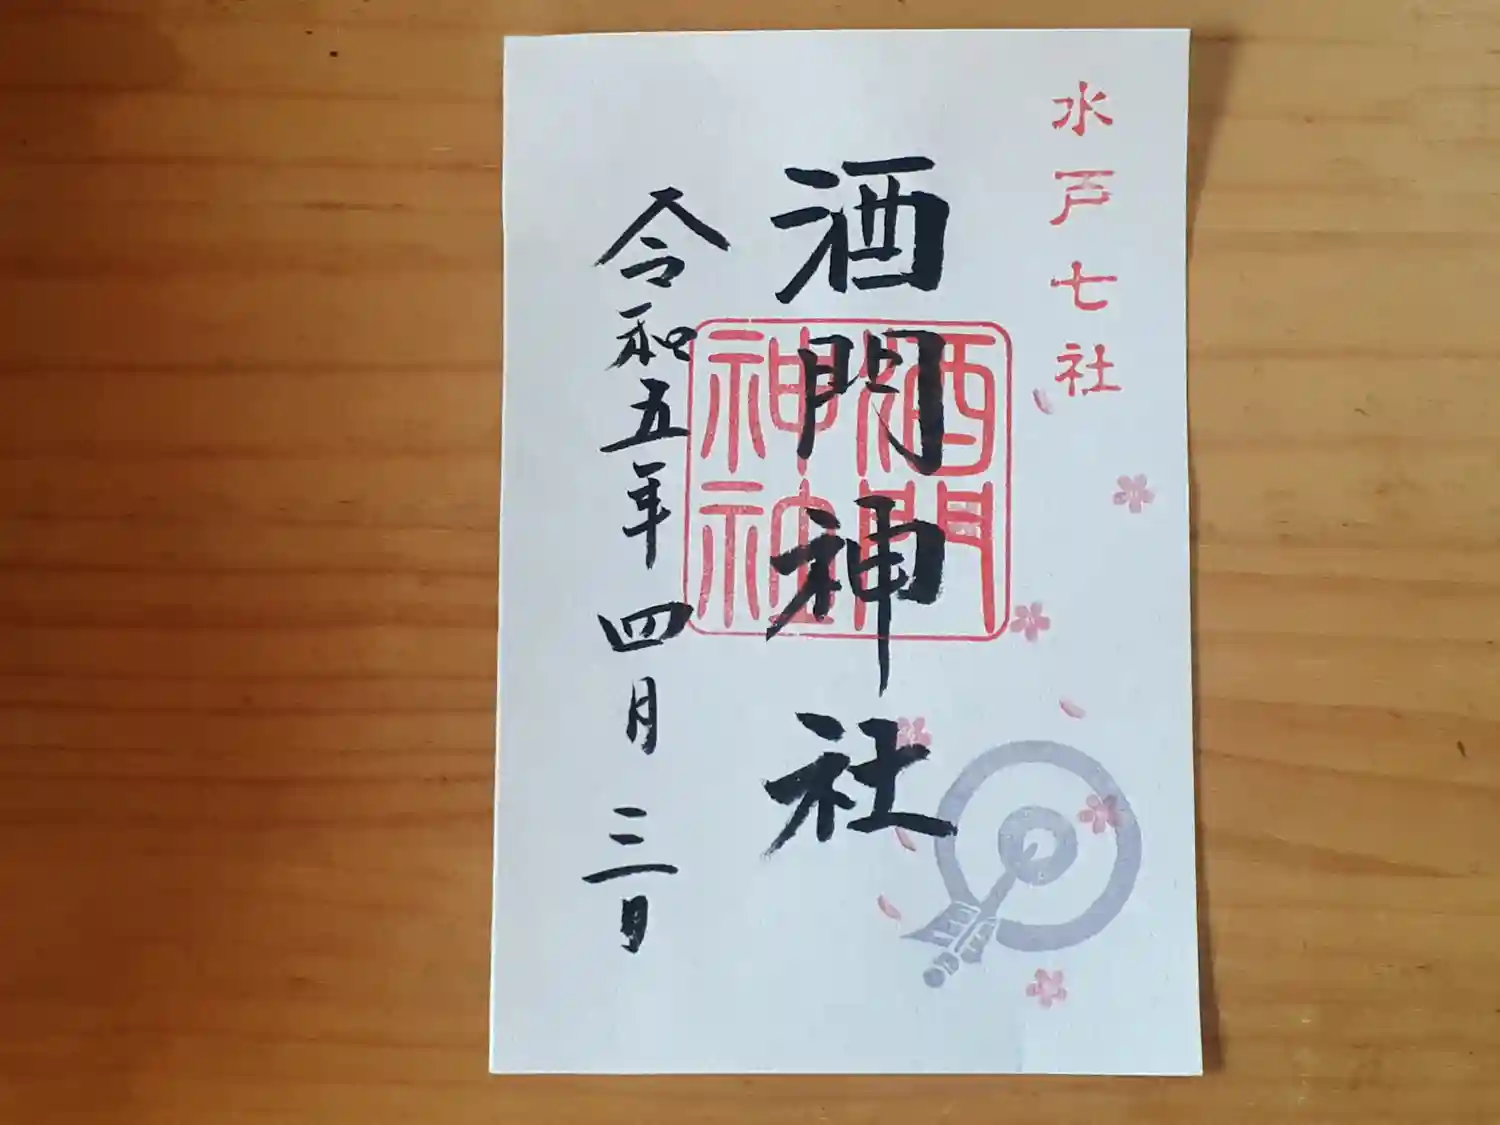 水戸七社
酒門神社
酒門
神社
令和五年四月三日